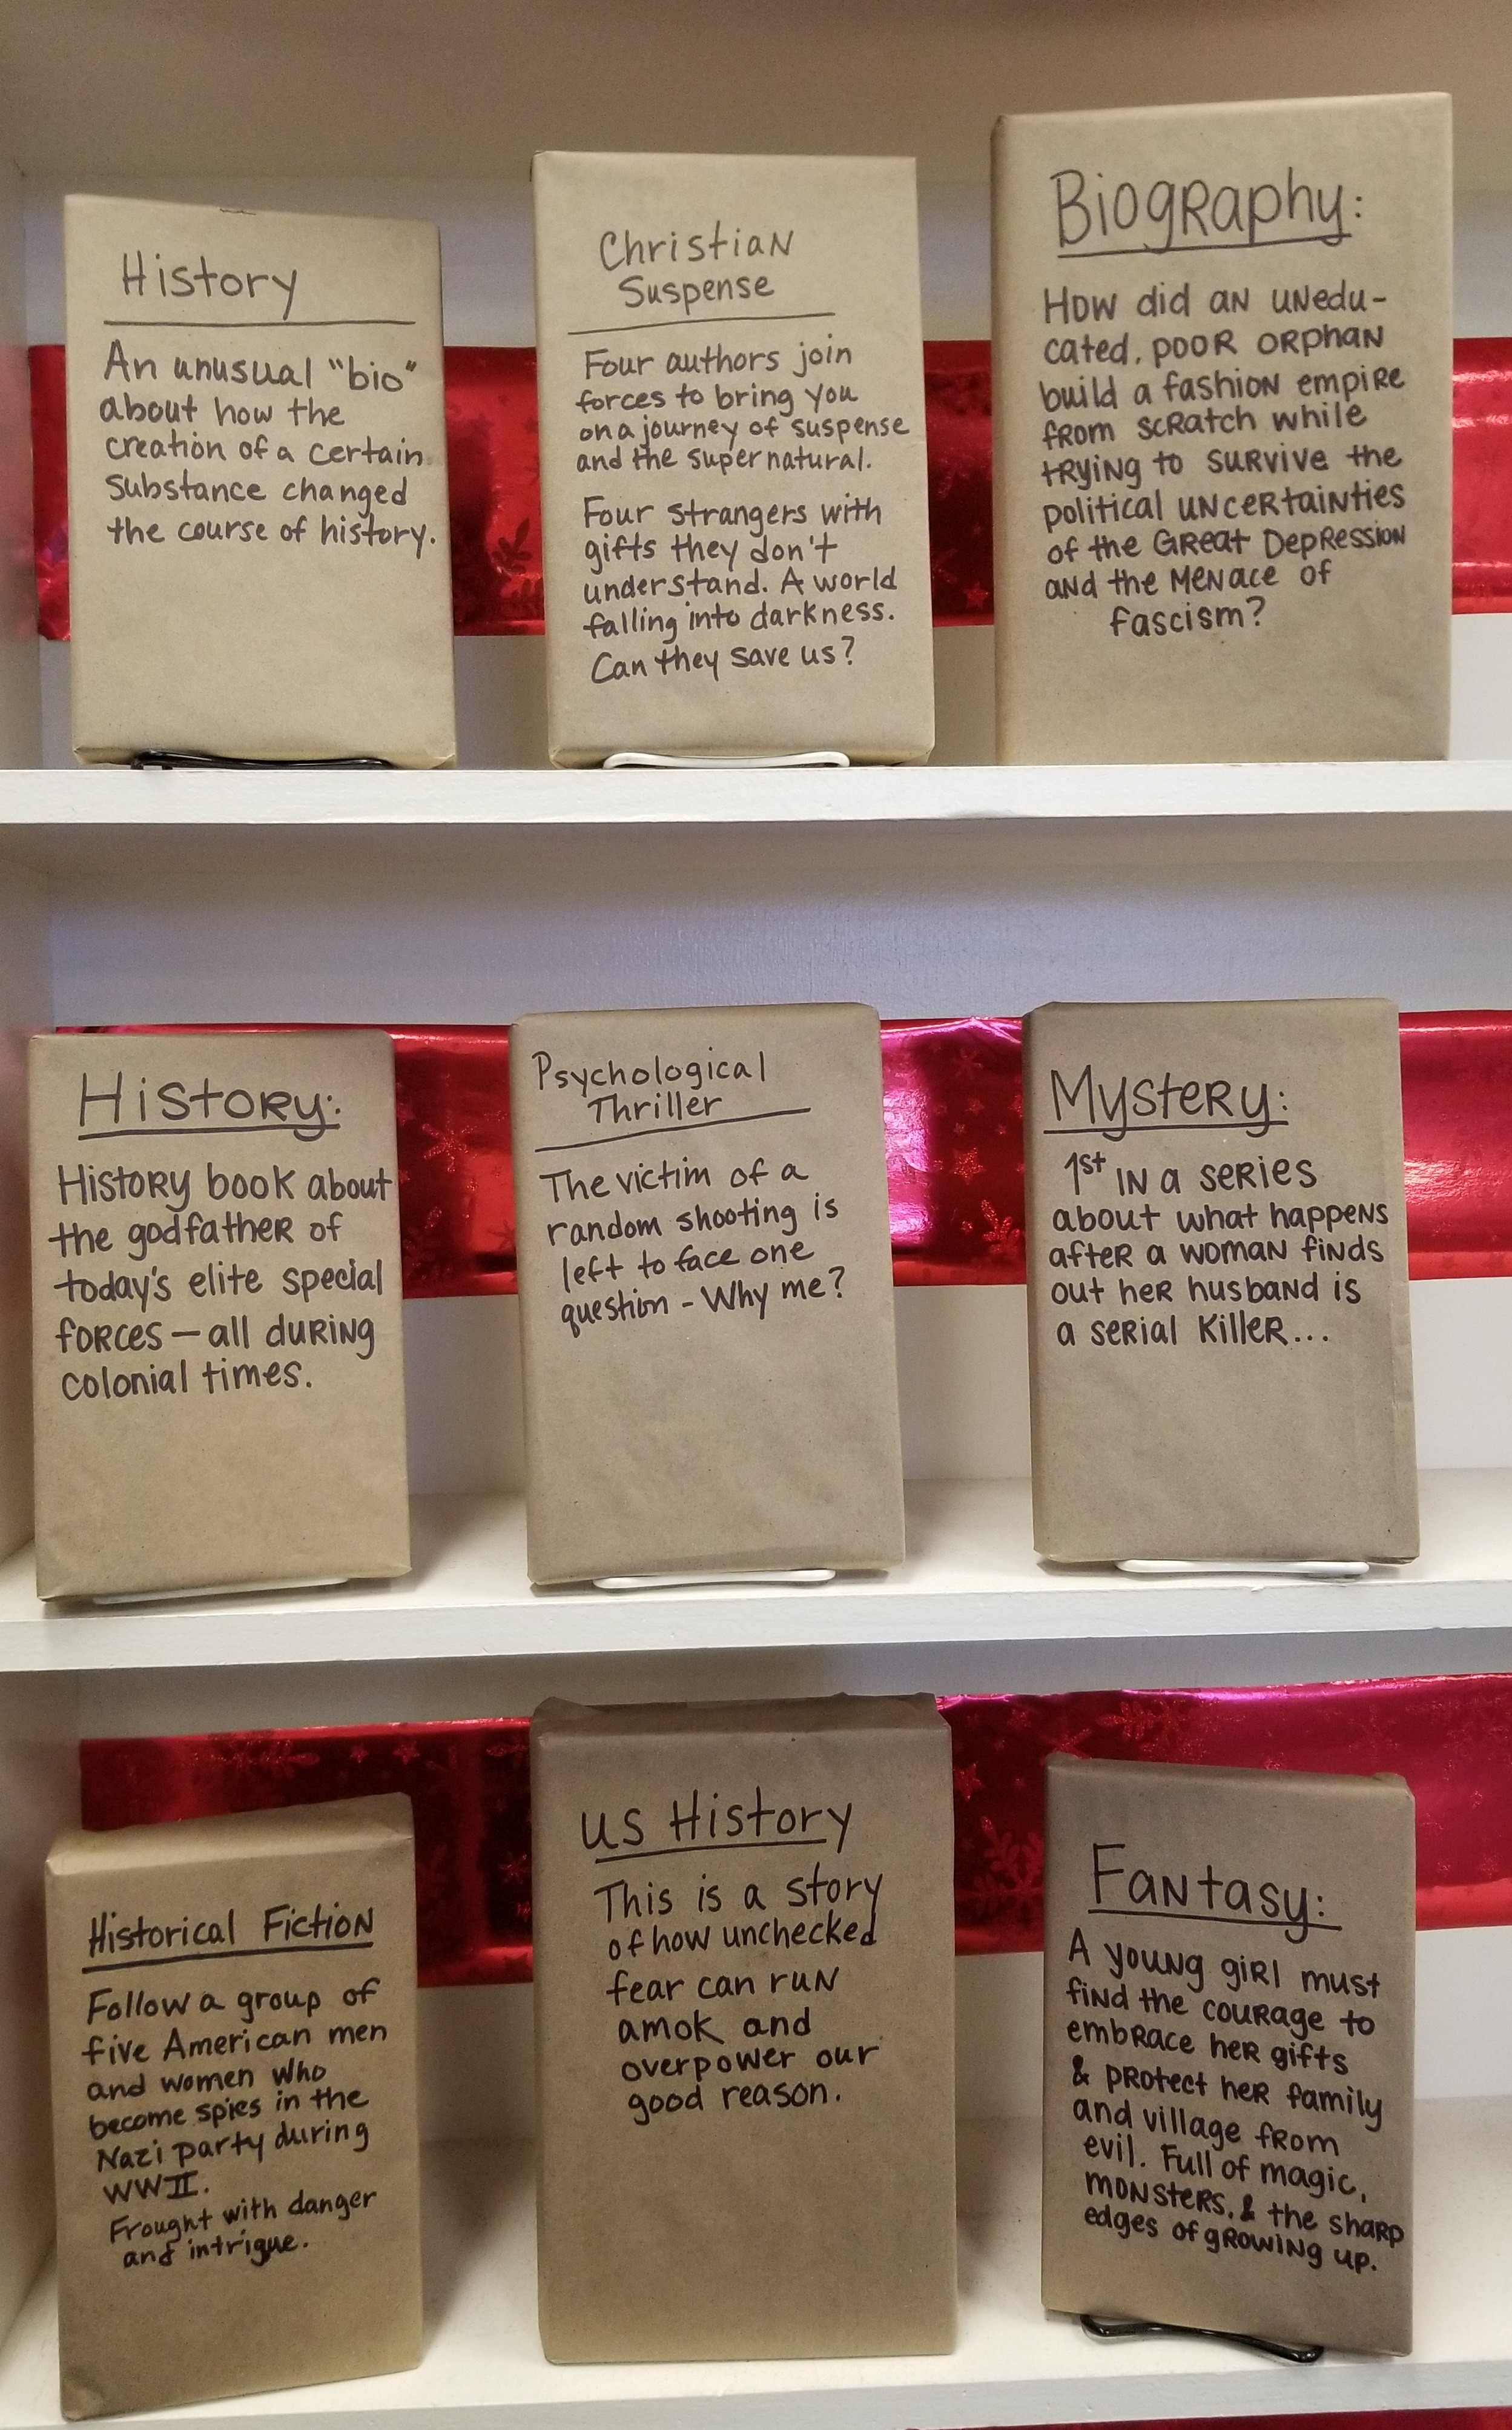 History
An unusual "bio"
about how the
creation of a certain
substance changed
the course of history.
Christian
Suspense
Four authors join
forces to bring you
on a journey of suspense
and the supernatural.
Four strangers with
gifts they don't
understand. A world
falling into darkness.
Can they save us?
Biography:
How did an unedu-
cated, poor orphan
build a fashion empire
from scratch while
trying to survive the
political uncertainties
of the Great Depression
and the menace of
fascism?
History:
History book about
the godfather of
today's elite special
forces - all during
colonial times.
Psychological
Thriller
The victim of a
random shooting is
left to face one
question - Why me?
Mystery:
1st in a series
about what happens
after a woman finds
out her husband is
a serial killer...
Historical Fiction
Follow a group of
five American men
and women who
become spies in the
Nazi party during
WWII.
Frought with danger
and intrigue.
US History
This is a story
of how unchecked
fear can run
amok and
overpower our
good reason.
Fantasy:
A young girl must
find the courage to
embrace her gifts
& protect her family
and village from
evil. Full of magic,
monsters, & the sharp
edges of growing up.